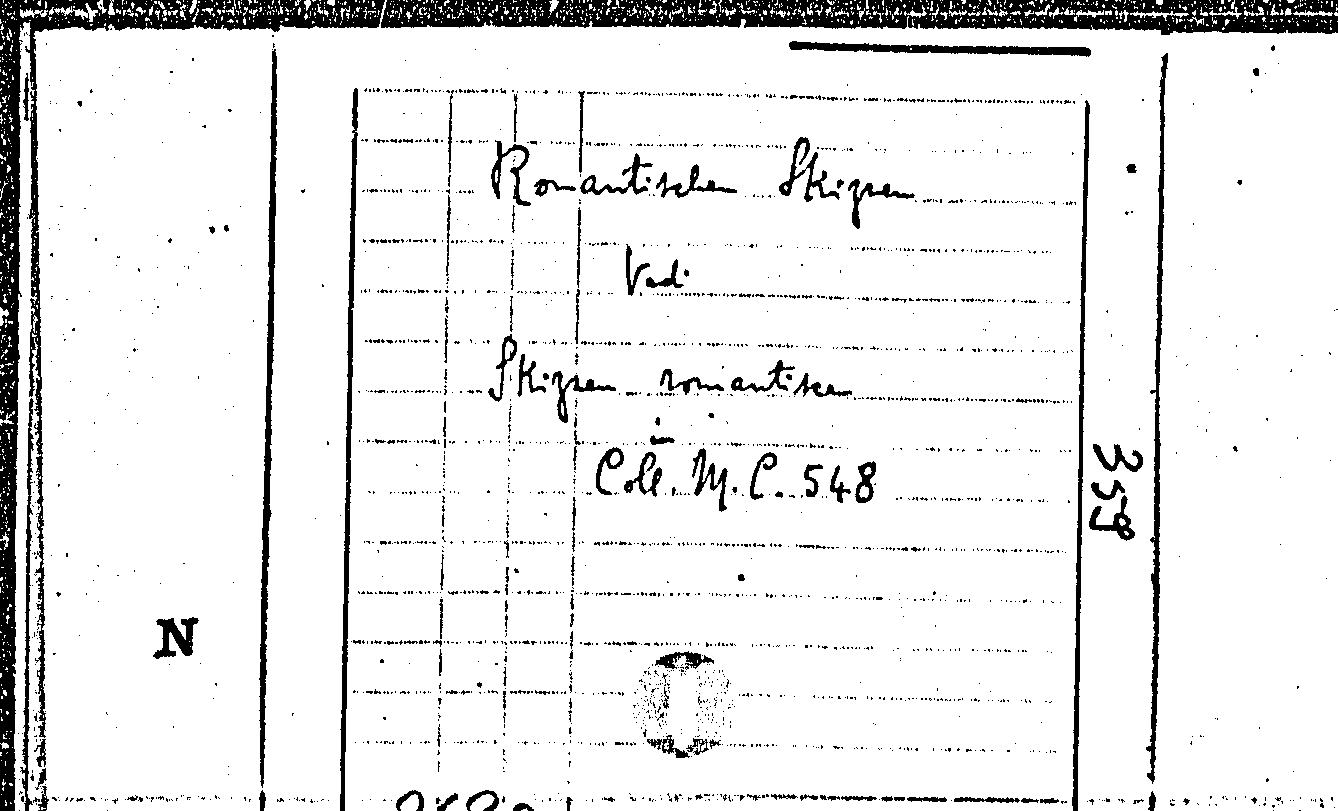 Romantischen Skizzen
Vedi
Skizzen romantische
in
Coll. M. C. 548
358
N